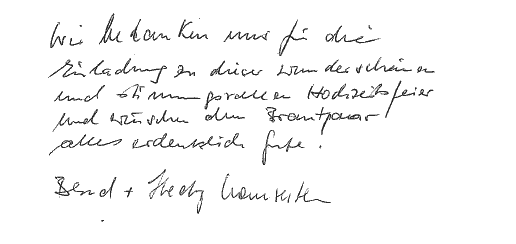 Wir bedanken uns für die
Einladung zu dieser wunderschönen
und stimmungsvollen Hochzeitsfeier
und wünschen dem Brautpaar
alles erdenklich Gute.
Bernd + Hedy